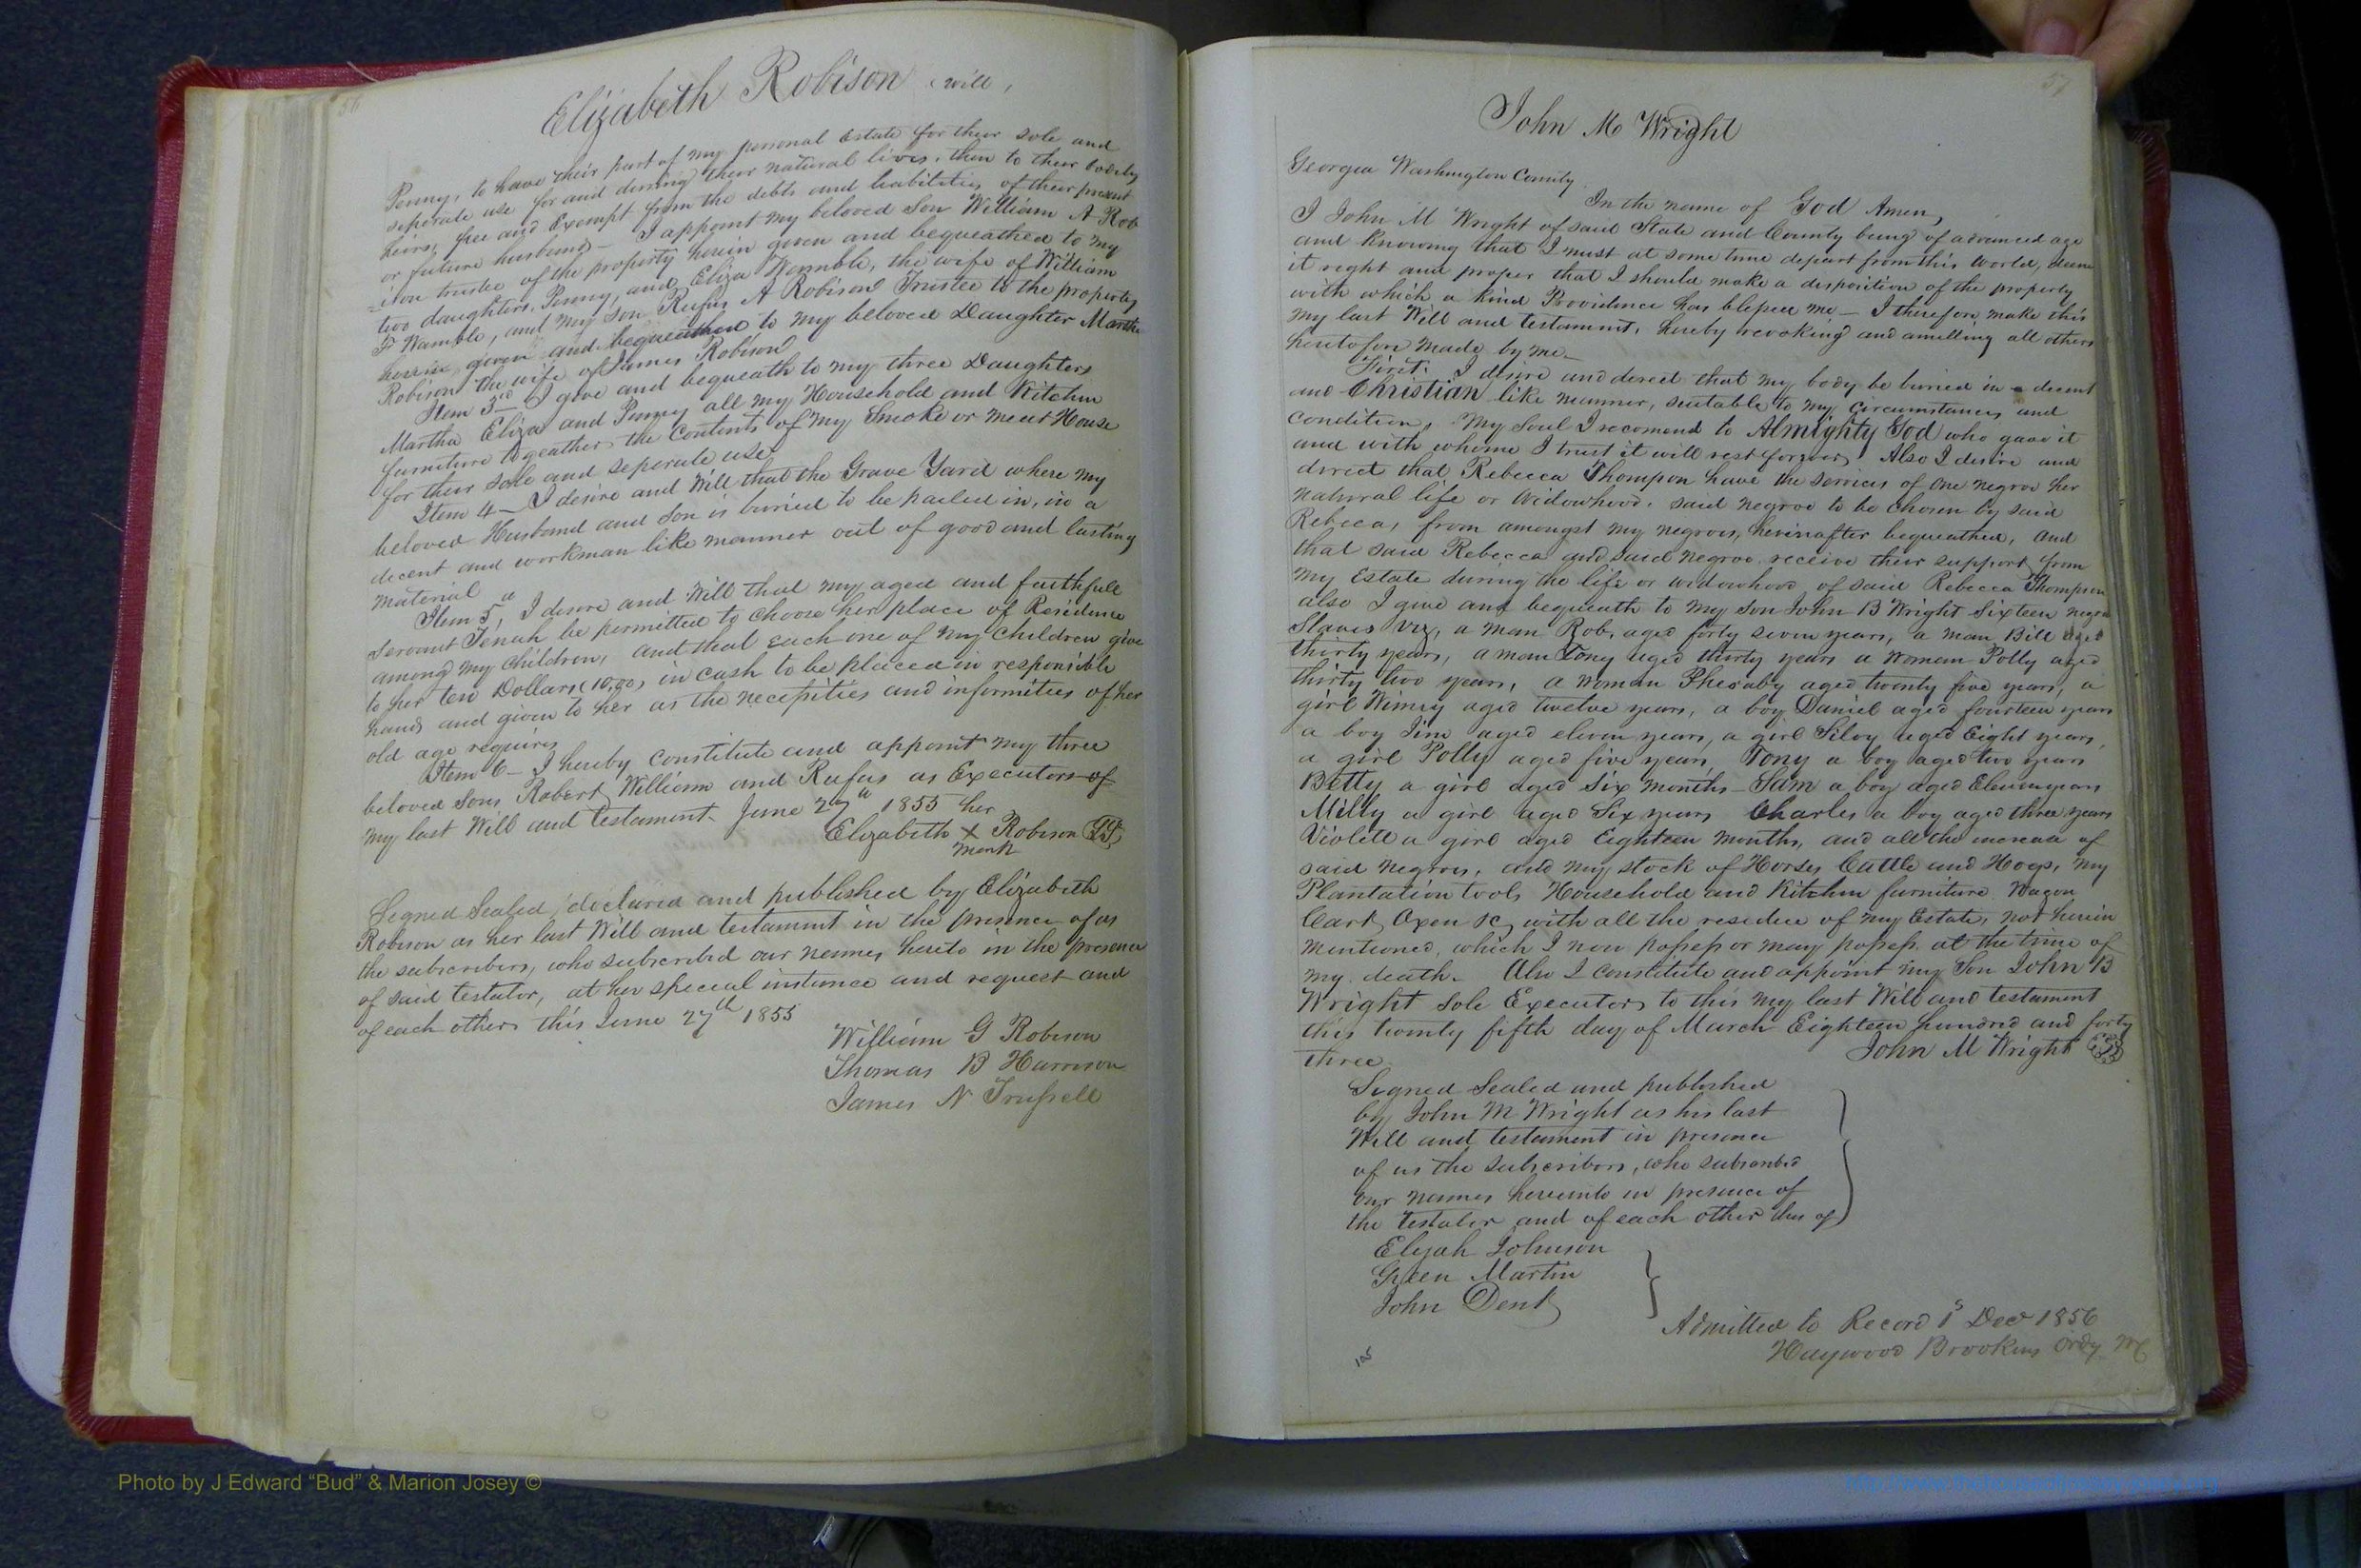 56
Elizabeth Robison (will,
Penny, to have their part of my personal Estate for their sole and
seperate use for and during their natural lives, then to their bodily
heirs, free and Exempt from the debts and liabilities of their present
or future husband – I appoint my beloved Son William A Rob
=ison trustee of the property herein given and bequeathed to my
two daughters, Penny, and Eliza Wamble, the wife of William
F Wamble, and my son Rufus A Robison Trustee to the property
herein given and bequeathed to my beloved Daughter Martha
Robison the wife of James Robison
Item 3rd I give and bequeath to my three Daughters
Martha Eliza and Penny all my Household and Kitchen
furniture togeather the Contents of my Smoke or meat House
for their sole and seperate use,
Item 4 – I desire and Will that the Grave Yard where my
beloved Husband and Son is buried to be pailed in, in a
decent and workman like manner out of good and lasting
material
Item 5th, I desire and Will that my aged and faithfull
Servant Tenah be permitted to choose her place of Residence
among my Children, and that each one of my Children give
to her ten Dollars (10,00) in cash to be placed in responsible
hands and given to her as the necessities and infirmities of her
old age requires
Item 6 – I hereby constitute and appoint my three
beloved Sons Robert, William and Rufus as Executors of
my last Will and testament. June 27th 1855 her
Elizabeth X Robison LS
mark
Signed Sealed, declared and published by Elizabeth
Robison as her last Will and testament in the presence of us
the subscribers, who subscribed our names hereto in the presence
of said testator, at her special instance and request and
of each others this June 27th 1855
William G Robison
Thomas B Harrison
James N Trussell
57
John M Wright
Georgia Washington County
In the name of God Amen,
I John M Wright of said State and County being of advanced age
and knowing that I must at some time depart from this World, deem
it right and proper that I should make a disposition of the property
with which a kind Providence has blessed me – I therefore make this
my last Will and testament, hereby revoking and anulling all others
heretofore made by me –
First. I desire and direct that my body be buried in a decent
and Christian like manner, suitable to my Circumstances and
condition, My Soul I recomend to Almighty God who gave it
and with whome I trust it will rest forever, Also I desire and
direct that Rebecca Thompson have the services of one negroe her
natural life or Widowhood, said negroe to be chosen by said
Rebeca, from amongst my negroes, hereinafter bequeathed, And
that said Rebecca and said negroe receive their support from
My Estate during the life or widowhood of said Rebecca Thompson
also I give and bequeath to my Son John B Wright Sixteen negroe
Slaves Viz, a man Rob, aged forty seven years, a man Bill aged
thirty years, a man Tony aged thirty years a Woman Polly aged
thirty two years, a woman Pheraby aged twenty five years, a
girl Winny aged twelve years, a boy Daniel aged fourteen years
a boy Jim aged eleven years, a girl Silvy aged Eight years,
a girl Polly aged five years, Tony a boy aged two years
Betty a girl aged Six months – Sam a boy aged Eleven years
Milly a girl aged Six years Charles a boy aged three years
Violett a girl aged Eighteen months, and all the increase of
said negroes, and my stock of Horses Cattle and Hogs, my
Plantation tools Household and Kitchen furniture Wagon
Cart, Oxen &c, with all the residue of my Estate, not herein
mentioned, which I now possess or may possess at the time of
my death. Also I constitute and appoint my Son John B
Wright sole Executor to this my last Will and testament
this twenty fifth day of March Eighteen hundred and forty
three
John M Wright LS
Signed Sealed and published
by John M Wright as his last
Will and testament in presence
of us the subscribers, who subscribed
our names hereunto in presence of
the testator and of each other this of
Elijah Johnson
Green Martin
John Dent
Admitted to Record 1s Decr 1856
Haywood Brookins Ordy
Photo by J Edward “Bud” & Marion Josey ©